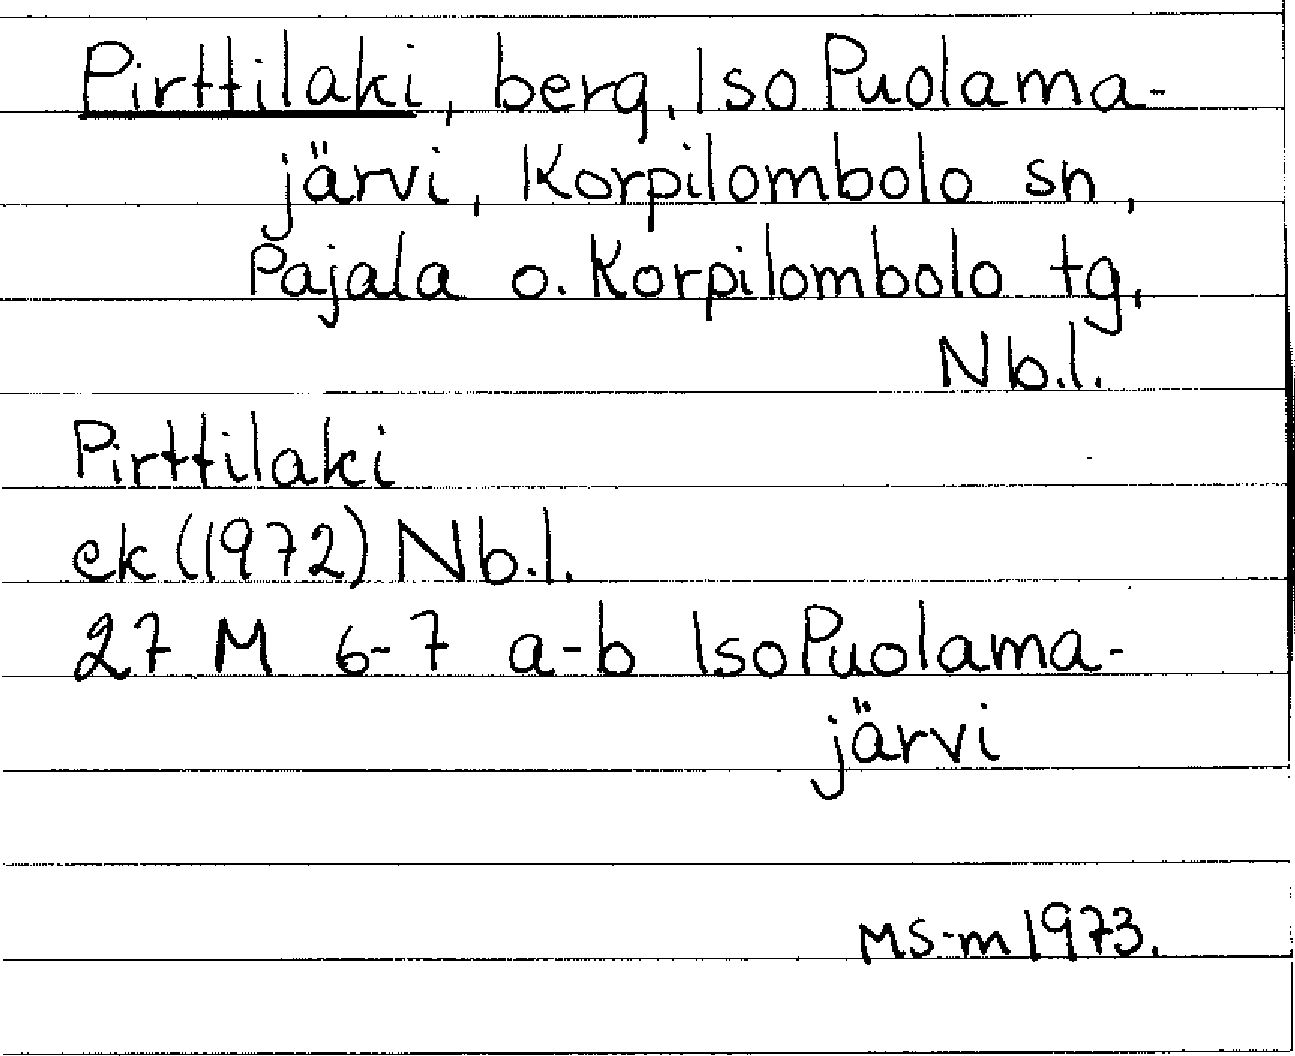 Pirttilaki, berg, Iso Puolama-
järvi, Korpilombolo sn,
Pajala o. Korpilombolo tg,
Nb.l.
Pirttilaki
ek (1972) Nb.l.
27 M 6-7 a-b Iso Puolama-
järvi
MS-m 1973.